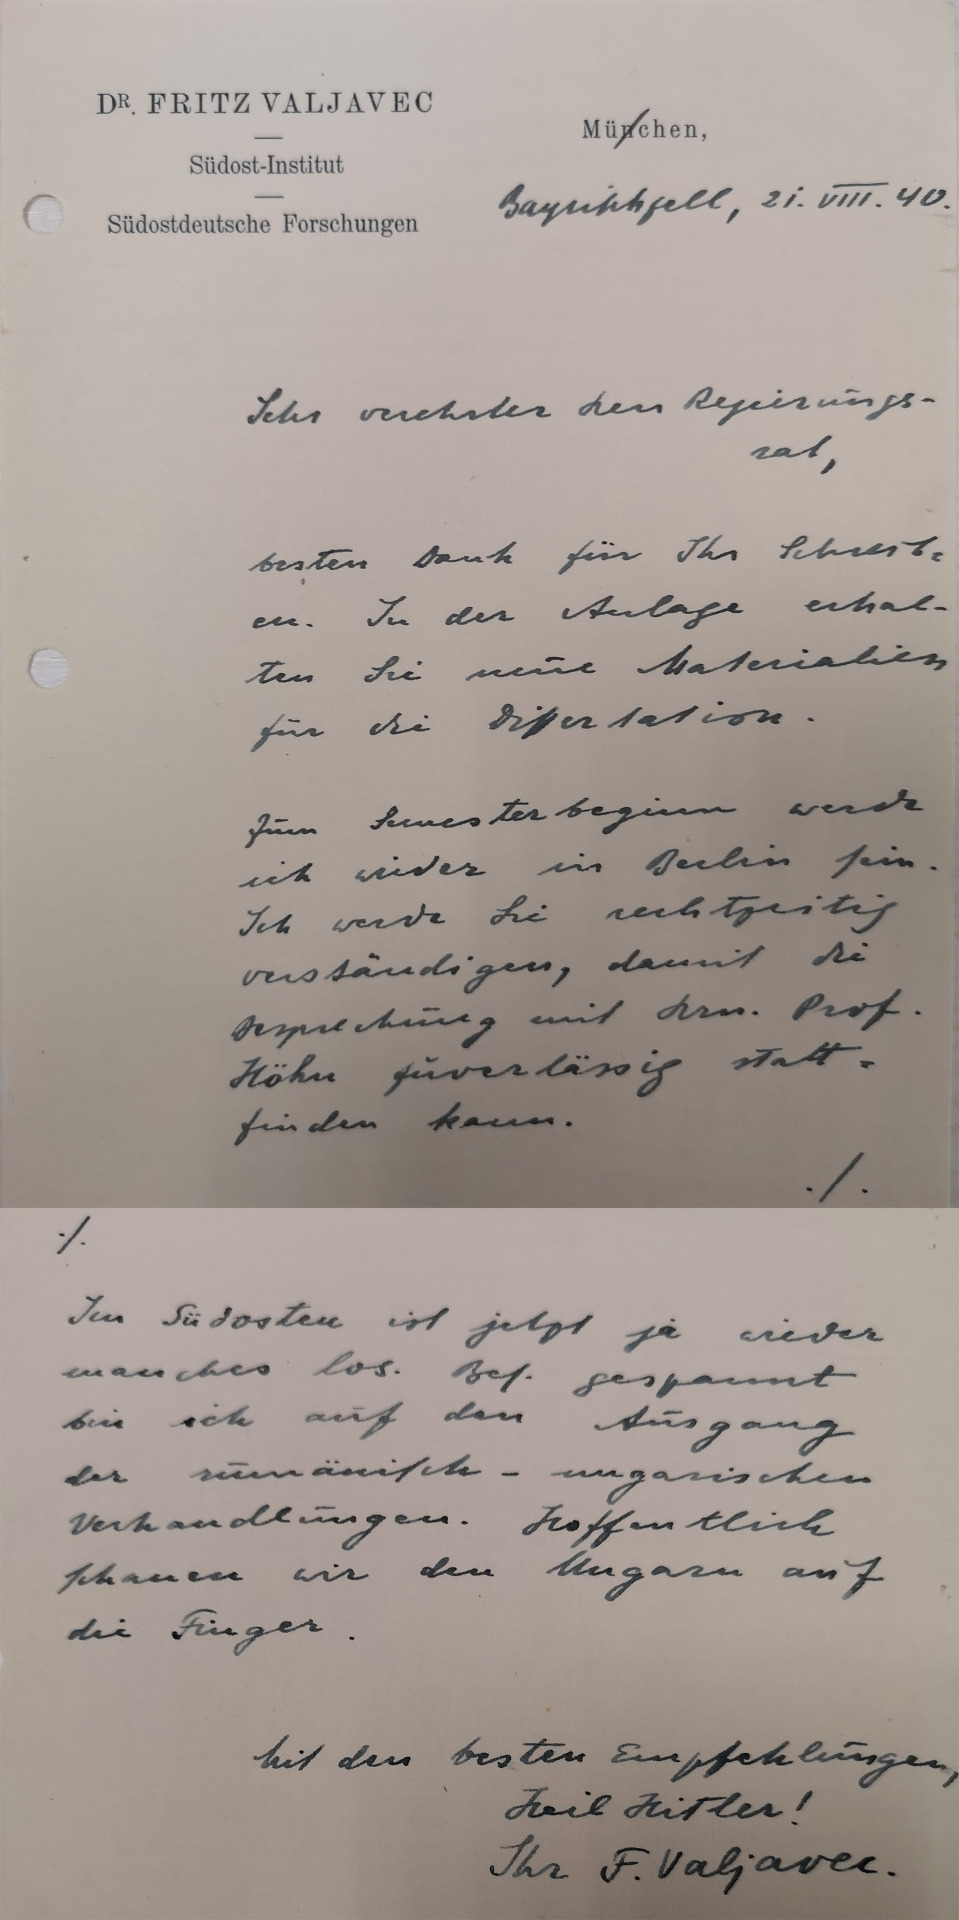 DR. FRITZ VALJAVEC
Südost-Institut
Südostdeutsche Forschungen
München,
Bayrischzell, 21. VIII. 40.
Sehr verehrter Herr Regierungs-
rat,
besten Dank für Ihr Schreib=
en. In der Anlage erhal-
ten Sie neue Materialien
für die Dissertation.
Zum Semesterbeginn werde
ich wieder in Berlin sein.
Ich werde Sie rechtzeitig
verständigen, damit die
Besprechung mit Hrn. Prof.
Höhn zuverlässig statt=
finden kann.
./.
./.
Im Südosten ist jetzt ja wieder
manches los. Bes. gespannt
bin ich auf den Ausgang
der rumänisch-ungarischen
Verhandlungen. Hoffentlich
schauen wir den Ungarn auf
die Finger.
Mit den besten Empfehlungen,
Heil Hitler!
Ihr F. Valjavec.